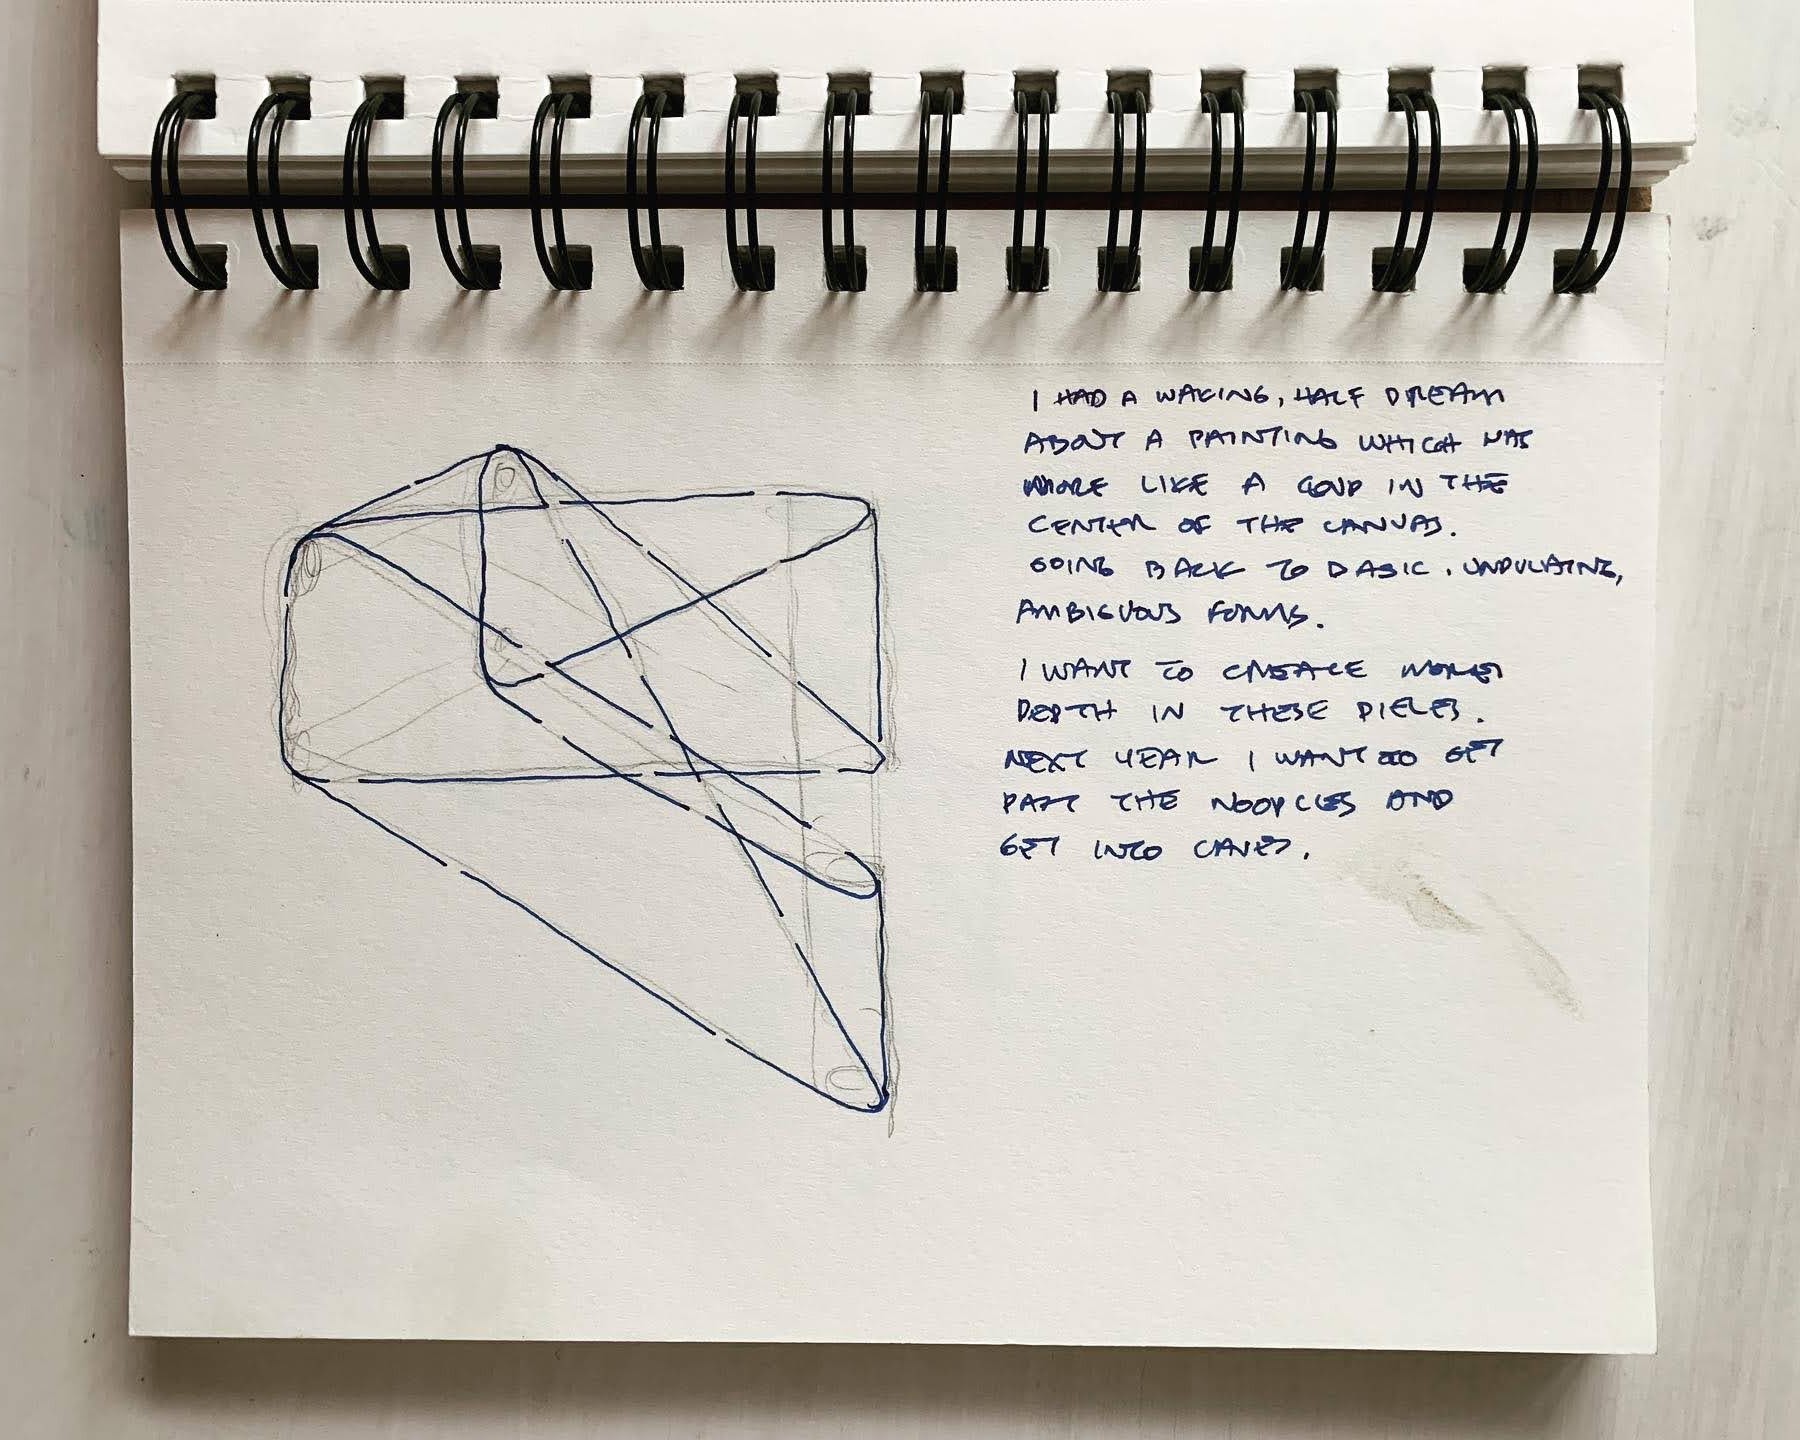 I HAD A WAKING, HALF DREAM
ABOUT A PAINTING WHICH WAS
MORE LIKE A IN THE
CENTER OF THE CANVAS.
GOING BACK TO BASIC, UNDULATING,
AMBIGUOUS FORMS.
I WANT TO CREATE MORE
DEPTH IN THESE PIECES.
NEXT YEAR I WANT TO GET
PAST THE NOODLES AND
GET INTO